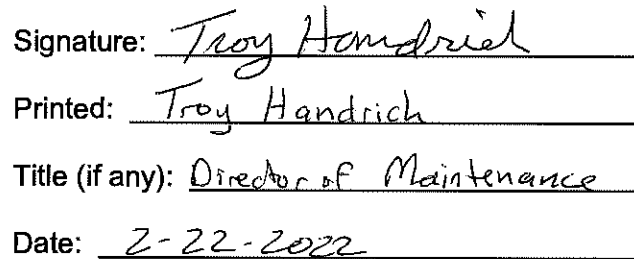 Signature: Troy Handrich
Printed: Troy Handrich
Title (if any): Director of Maintenance
Date: 2-22-2022